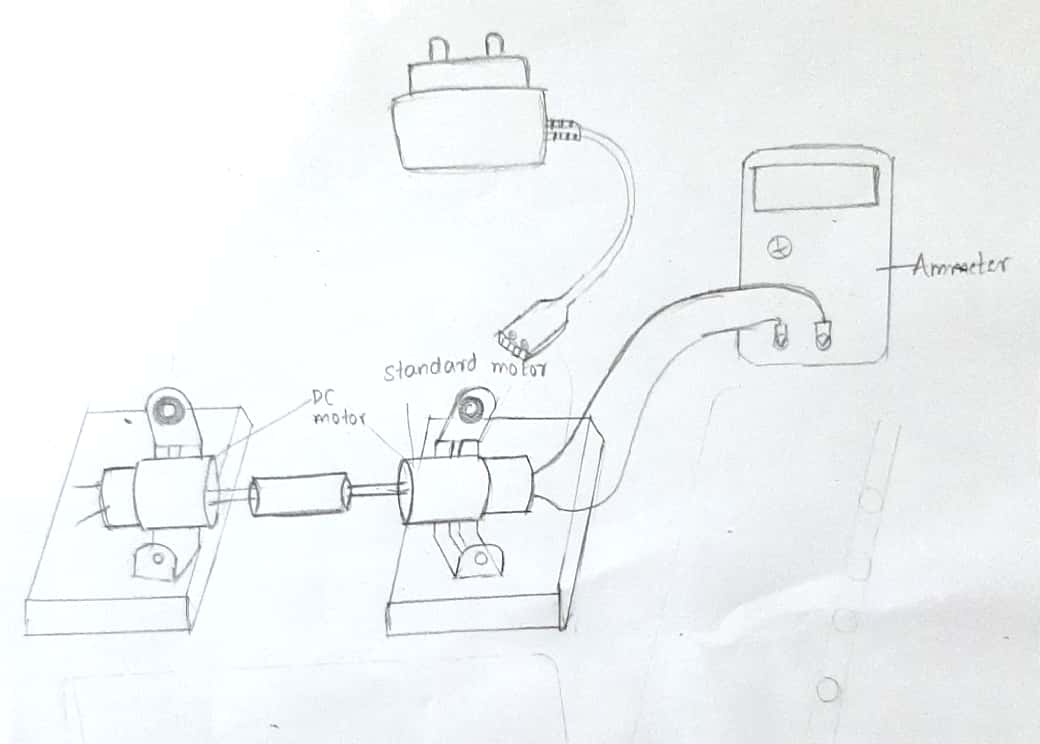 Ammeter
Standard motor
DC
motor